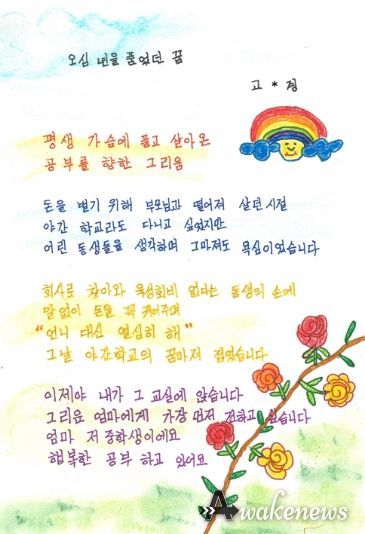 오십 년을 품었던 꿈
고 * 정
평생 가슴에 품고 살아온
공부를 향한 그리움
돈을 벌기 위해 부모님과 떨어져 살던 시절
야간 학교라도 다니고 싶었지만
어린 동생들을 생각하며 그마저도 욕심이었습니다
회사로 찾아와 육성회비 없다는 동생의 손에
말없이 돈을 꼭 쥐어주며
"언니 대신 열심히 해"
그날 야간학교의 꿈마저 접었습니다
이제야 내가 그 교실에 앉습니다
그리운 엄마에게 가장 먼저 전하고 싶습니다
엄마 저 중학생이에요
행복한 공부 하고 있어요
Awakenews